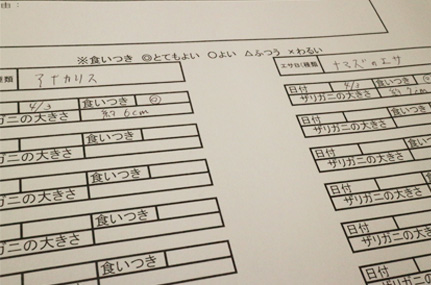 由：
※食いつき ◎とてもよい ○よい △ふつう ×わるい
種類 アナカリス
4/3 食いつき ◎
ガニの大きさ 約6cm
食いつき
ガニの大きさ
食いつき
ガニの大きさ
食いつき
ガニの大きさ
食いつき
ガニの大きさ
食いつき
エサB(種類 ナマズのエサ
日付 4/3 食いつき
ザリガニの大きさ 約7cm
日付
ザリガニの大きさ
日付
ザリガニの大きさ
日付
ザリガニの大きさ
日付
ザリガニの大きさ
日付
ザリガニの大きさ